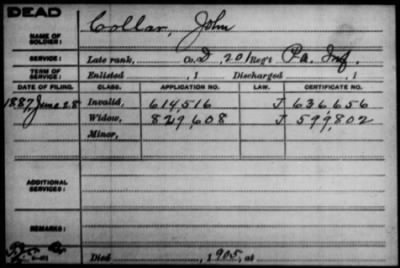 DEAD
NAME OF SOLDIER: Collar, John
SERVICE: Late rank, Co. D, 201 Reg't Pa. Inf.
TERM OF SERVICE: Enlisted , 1 Discharged , 1
DATE OF FILING. CLASS. APPLICATION NO. LAW. CERTIFICATE NO.
1887, June 28 Invalid, 614,516 J 636656
Widow, 829,608 J 599,802
Minor,
ADDITIONAL SERVICES:
REMARKS:
Died , 1905, at